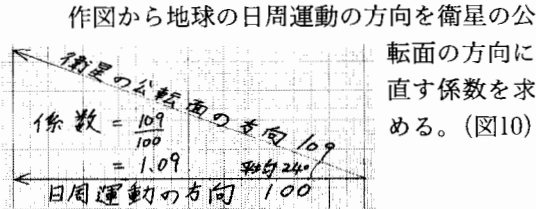 作図から地球の日周運動の方向を衛星の公
転面の方向に
直す係数を求
める。(図10)
衛星の公転面の方向 109
係数 = 109/100
= 1.09
平均24°
日周運動の方向 100